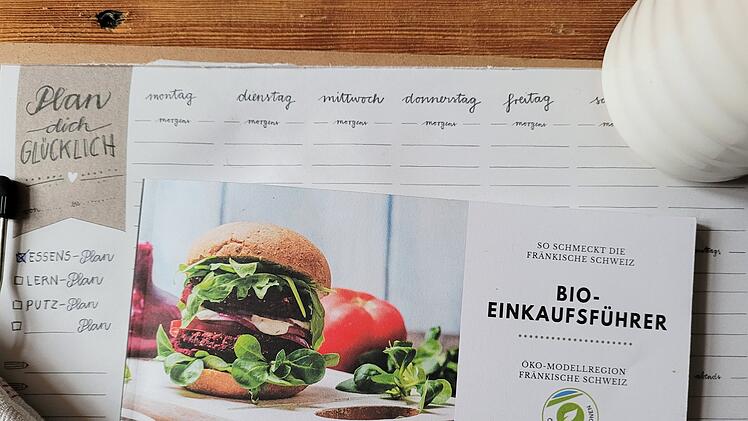 Plan
dich
GLÜCKLICH
montag
dienstag
mittwoch
donnerstag
freitag
morgens
morgens
morgens
morgens
morgens
ESSENS-Plan
LERN-Plan
PUTZ-Plan
Plan
abends
SO SCHMECKT DIE
FRÄNKISCHE SCHWEIZ
BIO-
EINKAUFSFÜHRER
ÖKO-MODELLREGION
FRÄNKISCHE SCHWEIZ